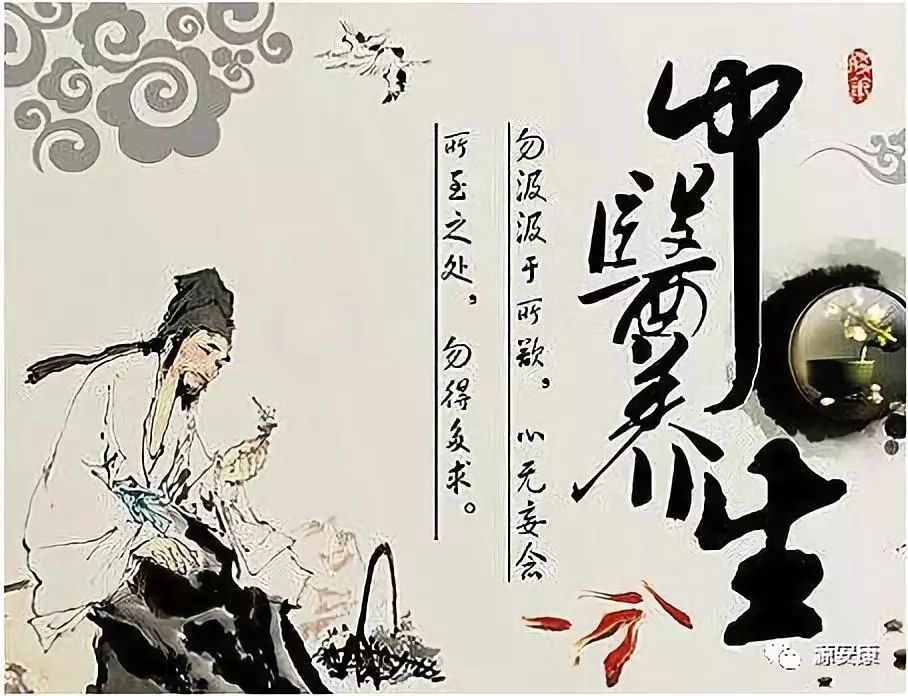 中醫养生
勿汲汲于所歉，心无妄念
所至之处，勿得多求。
源安康